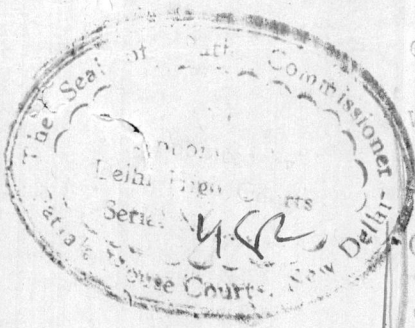 The Seal of Oath Commissioner
Delhi High Courts
Serial
482
Patiala House Courts, New Delhi-